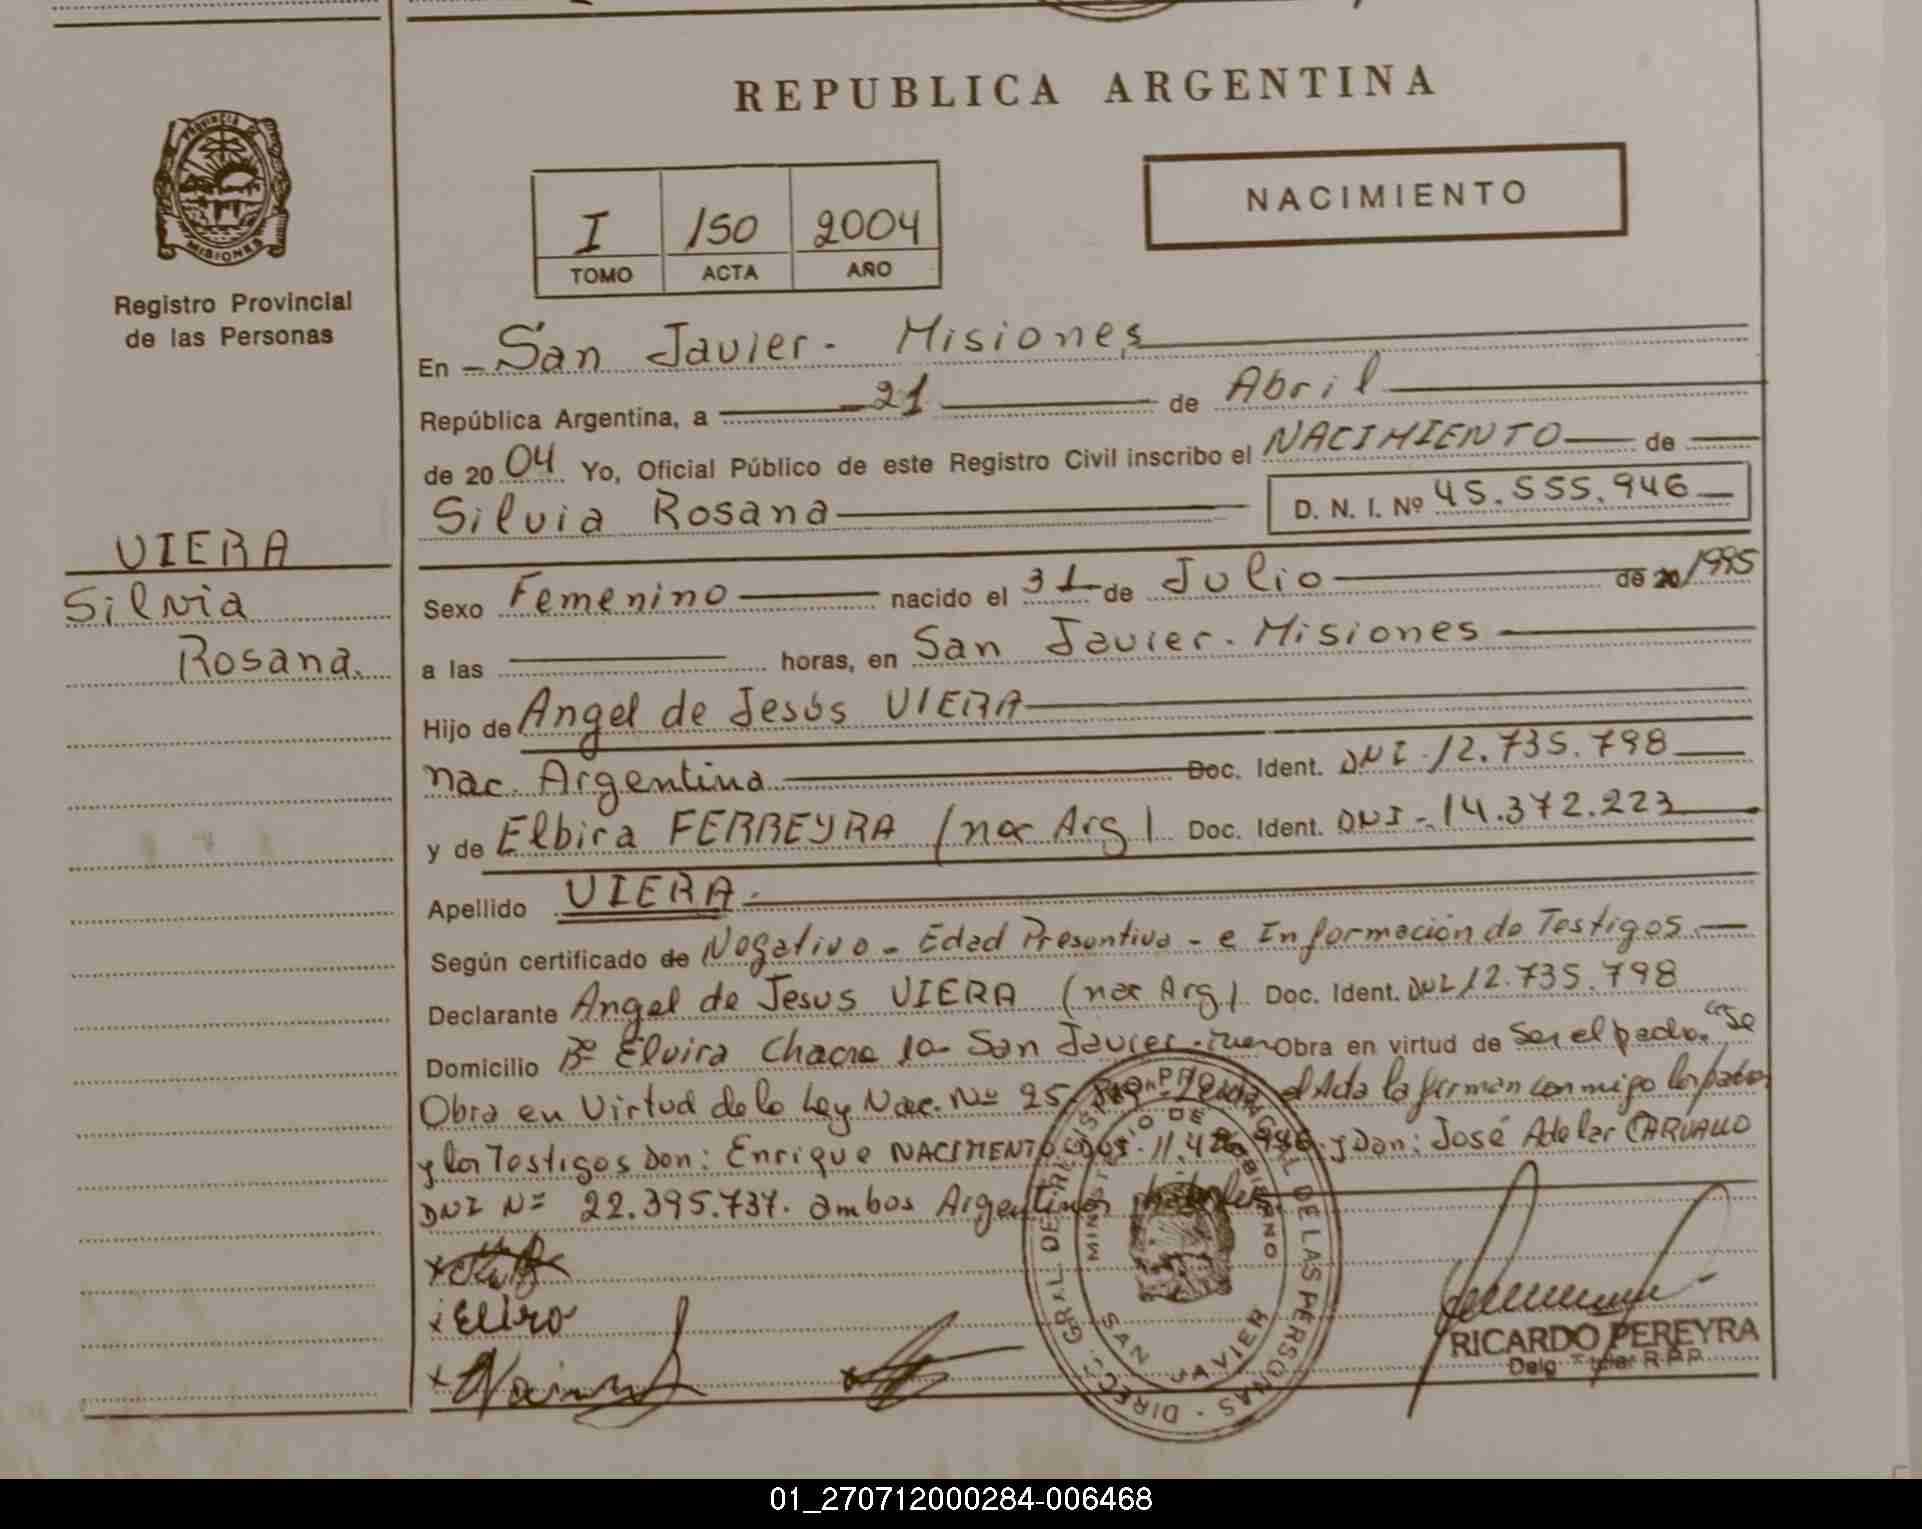 REPUBLICA ARGENTINA
PROVINCIA DE
MISIONES
Registro Provincial
de las Personas
I 150 2004
TOMO ACTA AÑO
NACIMIENTO
VIERA
Silvia
Rosana.
En San Javier - Misiones
República Argentina, a 21 de Abril
de 2004 Yo, Oficial Público de este Registro Civil inscribo el NACIMIENTO de
Silvia Rosana D. N. I. Nº 45.555.946
Sexo Femenino nacido el 31 de Julio de 20 1995
a las horas, en San Javier - Misiones
Hijo de Angel de Jesús VIERA
nac. Argentina Doc. Ident. DNI - 12.735.798
y de Elbira FERREYRA (nac Arg) Doc. Ident. DNI - 14.372.223
Apellido VIERA.
Según certificado de Negativo - Edad Presuntiva - e Información de Testigos
Declarante Angel de Jesus VIERA (nac Arg) Doc. Ident. DNI 12.735.798
Domicilio Bº Elvira Chacra 10 San Javier - Obra en virtud de Ser el padre. "Se
Obra en Virtud de la Ley Nac. Nº 25. el Acta la firman conmigo los padres
y los Testigos Don: Enrique NACIMENTO y Don: José Adelar CARVALLO
DNI Nº 22.395.737. ambos Argentinos
DIREC. GRAL DE REGISTRO PROVINCIAL DE LAS PERSONAS
MINISTERIO DE GOBIERNO
SAN JAVIER
RICARDO PEREYRA
Deleg. Titular R.P.P.
01_270712000284-006468